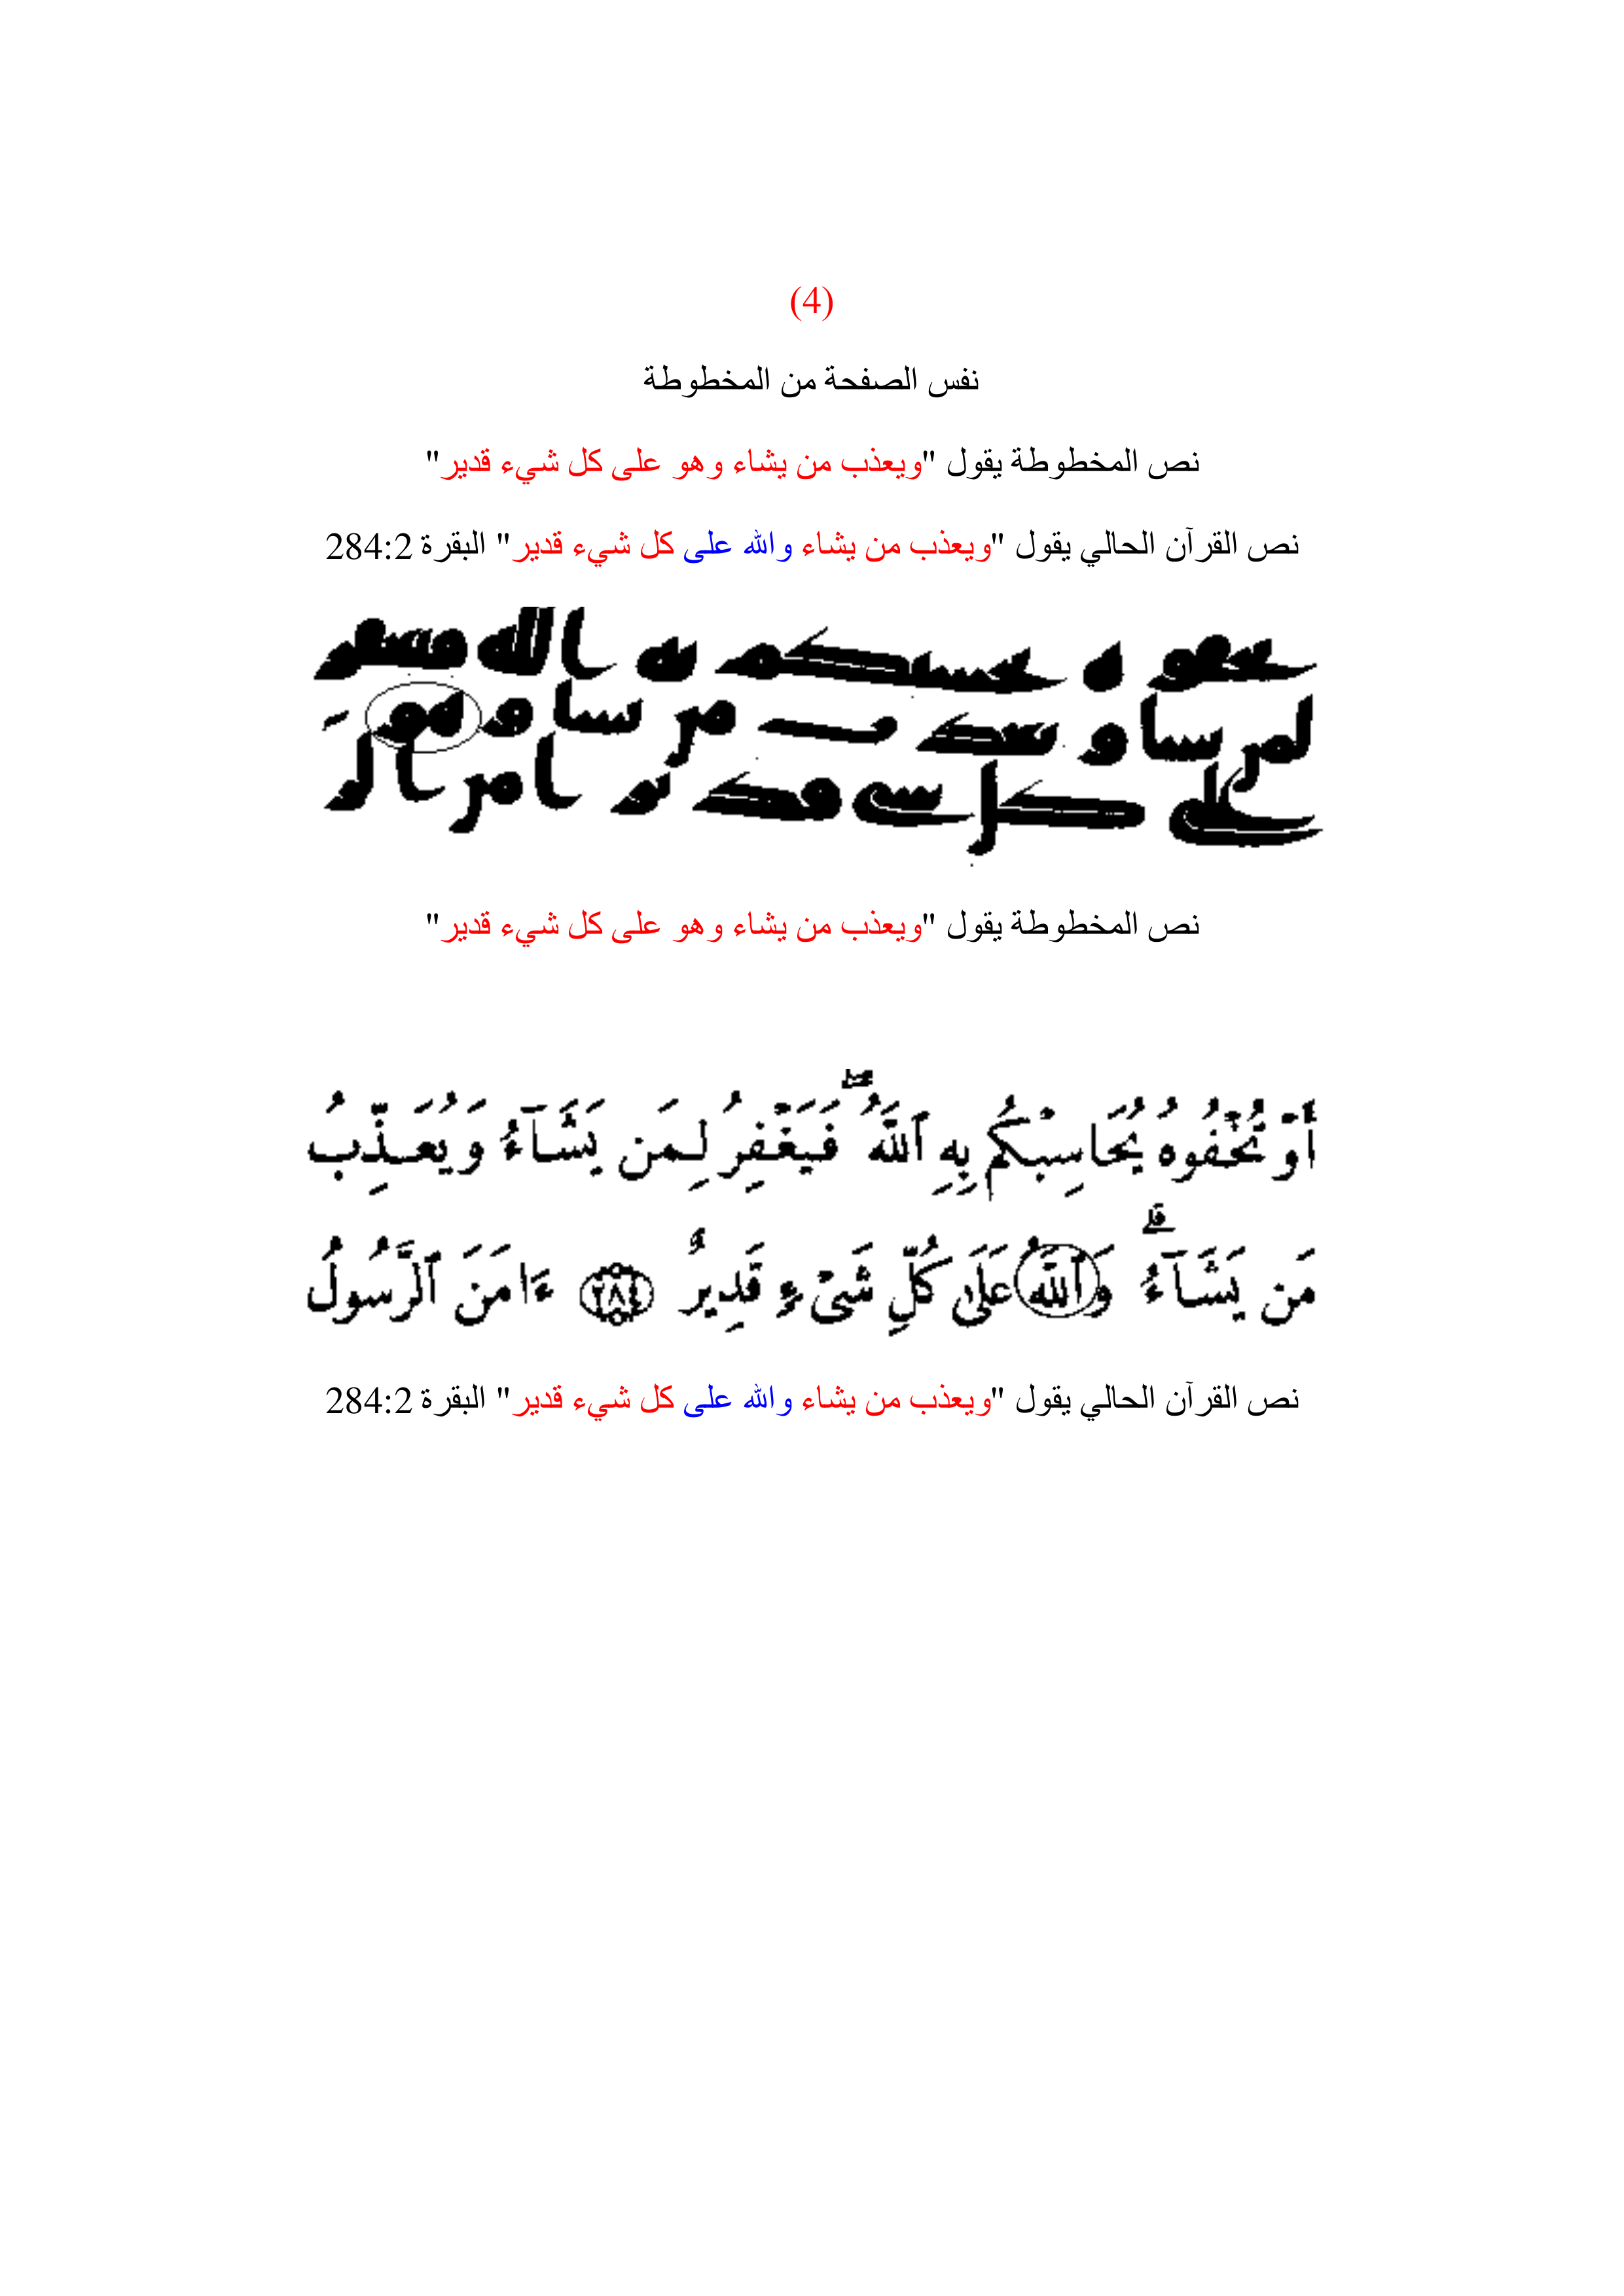 (4)
نفس الصفحة من المخطوطة
نص المخطوطة يقول "ويعذب من يشاء وهو على كل شيء قدير"
نص القرآن الحالي يقول "ويعذب من يشاء والله على كل شيء قدير" البقرة 284:2
نص المخطوطة يقول "ويعذب من يشاء وهو على كل شيء قدير"
أَوْ تُخْفُوهُ يُحَاسِبْكُم بِهِ ٱللَّهُ ۖ فَيَغْفِرُ لِمَن يَشَآءُ وَيُعَذِّبُ
مَن يَشَآءُ ۗ وَٱللَّهُ عَلَىٰ كُلِّ شَىْءٍ قَدِيرٌ ٢٨٤ ءَامَنَ ٱلرَّسُولُ
نص القرآن الحالي يقول "ويعذب من يشاء والله على كل شيء قدير" البقرة 284:2